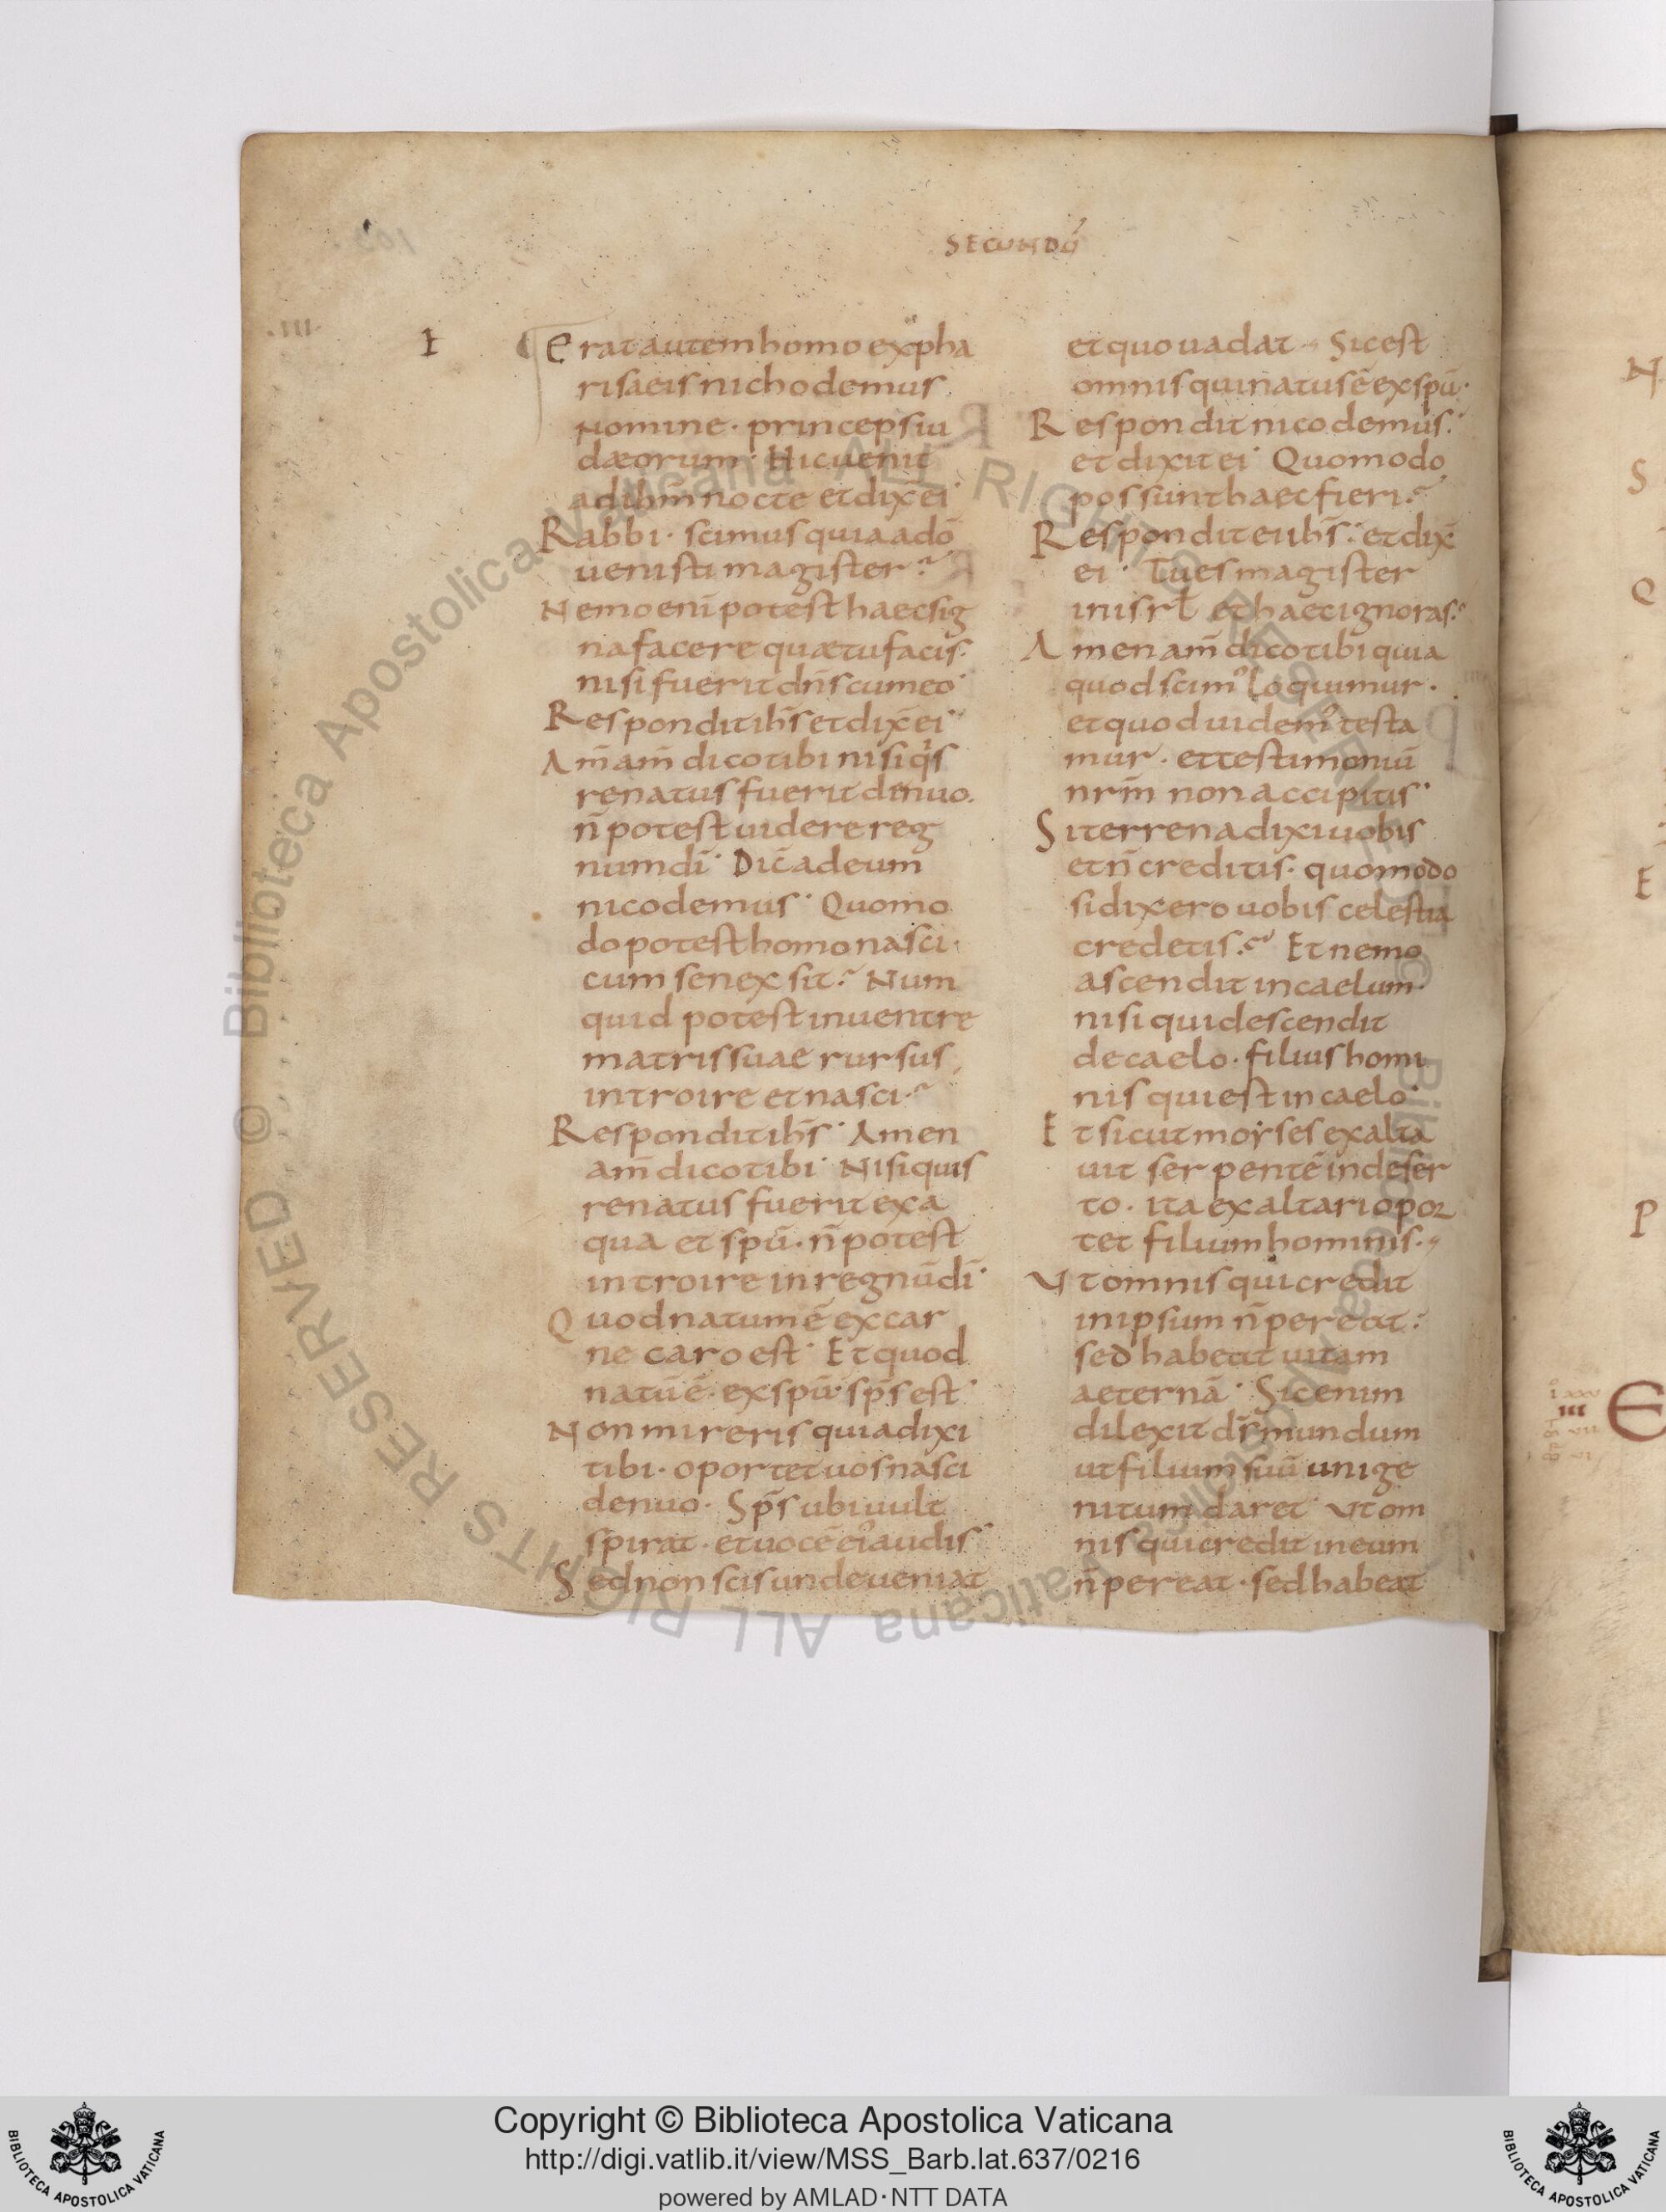 SECUNDŪ
.III.
I
Erat autem homo expha
risaeis nichodemus
nomine · princeps iu
dæorum · Hic uenit
ad ihm̄ nocte et dix̄ ei·
Rabbi · scimus quia a dō
uenisti magister
Nemo enī potest haec sig
na facere quæ tu facis·
nisi fuerit dn̄s cum eo·
Respondit ihs̄ et dix̄ ei·
Am̄ am̄ dico tibi nisi qis
renatus fuerit denuo.
n̄ potest uidere reg
num dī · Dic̄ ad eum
nicodemus · Quomo
do potest homo nasci·
cum senex sit? Num
quid potest in uentre
matris suae rursus
introire et nasci?
Respondit ihs̄ · Amen
am̄ dico tibi · Nisi quis
renatus fuerit ex a
qua et spū · n̄ potest
introire in regnū dī·
Quod natum ē ex car
ne caro est · Et quod
natū ē · ex spū · sps̄ est·
Non mireris quia dixi
tibi · oportet uos nasci
denuo · Sps̄ ubi uult
spirat · et uocē ei' audis
Sed non scis unde ueniat
et quo uadat · Sic est
omnis qui natus ē ex spū·
Respondit nicodemus·
et dixit ei · Quomodo
possunt haec fieri?
Respondit ei ihs̄ · et dix̄
ei · Tu es magister
in isrl̄ et haec ignoras?
Amen am̄ dico tibi quia
quod scim' loquimur ·
et quod uidem' testa
mur · et testimoniū
nrm̄ non accipitis·
Si terrena dixi uobis
et n̄ creditis · quomodo
si dixero uobis celestia
credetis? Et nemo
ascendit in caelum·
nisi qui descendit
de caelo · filius homi
nis qui est in caelo·
Et sicut moyses exalta
uit serpentē in deser
to · ita exaltari opor
tet filium hominis·
Ut omnis qui credit
in ipsum n̄ pereat
sed habeat uitam
aeternā · Sic enim
dilexit ds̄ mundum
ut filium suū unige
nitum daret · Ut om
nis qui credit in eum
n̄ pereat · sed habeat
N
S
Q
E
P
III
E
Copyright © Biblioteca Apostolica Vaticana
http://digi.vatlib.it/view/MSS_Barb.lat.637/0216
powered by AMLAD·NTT DATA
BIBLIOTECA APOSTOLICA VATICANA
BIBLIOTECA APOSTOLICA VATICANA
© Biblioteca Apostolica Vaticana ALL RIGHTS RESERVED © Biblioteca Apostolica Vaticana ALL RIGHTS RESERVED